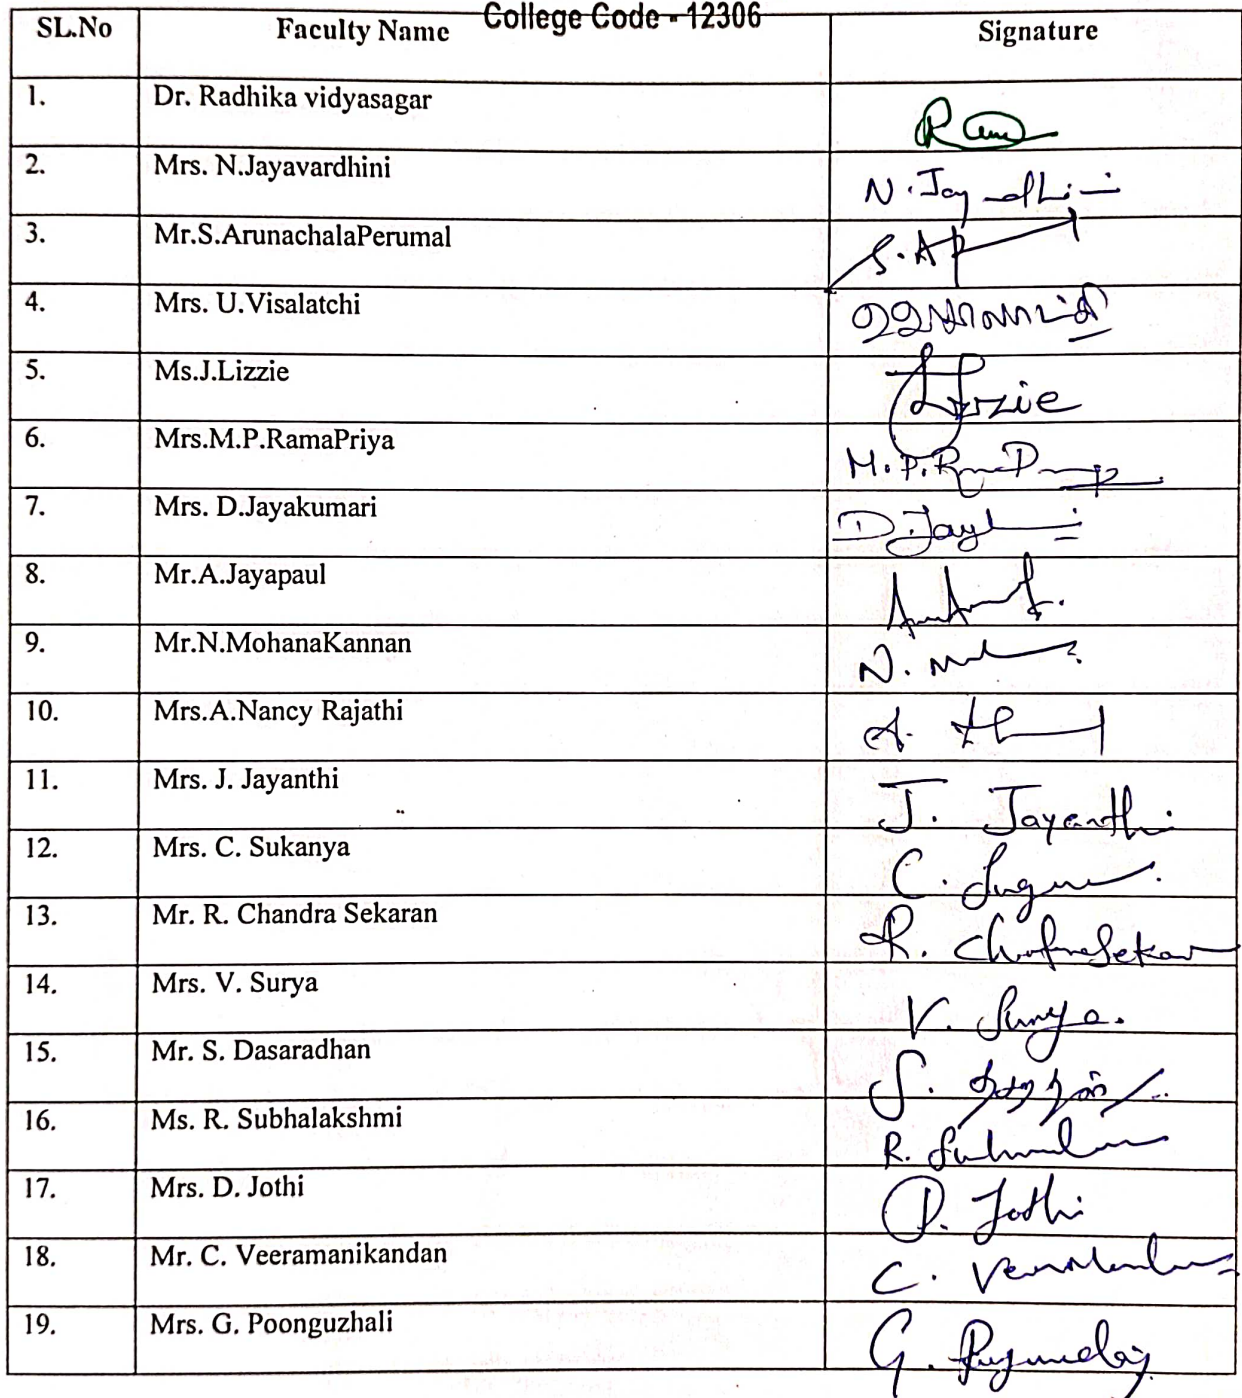 College Code - 12306
SL.No Faculty Name Signature
1. Dr. Radhika vidyasagar
2. Mrs. N.Jayavardhini N. Jay
3. Mr.S.ArunachalaPerumal S.AP
4. Mrs. U.Visalatchi
5. Ms.J.Lizzie Lizzie
6. Mrs.M.P.RamaPriya M.P.
7. Mrs. D.Jayakumari D.Jay
8. Mr.A.Jayapaul
9. Mr.N.MohanaKannan N.
10. Mrs.A.Nancy Rajathi A.
11. Mrs. J. Jayanthi J. Jayanthi
12. Mrs. C. Sukanya C.
13. Mr. R. Chandra Sekaran R.
14. Mrs. V. Surya V. Surya.
15. Mr. S. Dasaradhan S.
16. Ms. R. Subhalakshmi R.
17. Mrs. D. Jothi D. Jothi
18. Mr. C. Veeramanikandan C.
19. Mrs. G. Poonguzhali G.